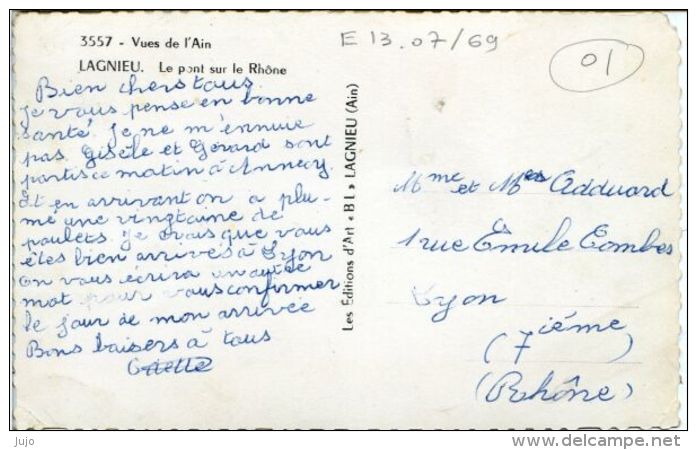 3557 - Vues de l'Ain
LAGNIEU. Le pont sur le Rhône
E 13.07/69
01
Bien chers tous.
Je vous pense en bonne
santé. Je ne m'ennuie
pas. Gisèle et Gérard sont
partis ce matin à Annecy.
Et en arrivant on a plu-
mé une vingtaine de
poulets. Je crois que vous
êtes bien arrivés à Lyon
On vous écrira un autre
mot pour vous confirmer
le jour de mon arrivée
Bons baisers à tous
Odette
Les Editions d'Art « BL » LAGNIEU (Ain)
Mme et Adduard
1 rue Émile Combes
Lyon
(7 ième
(Rhône)
Jujo
delcampe.net